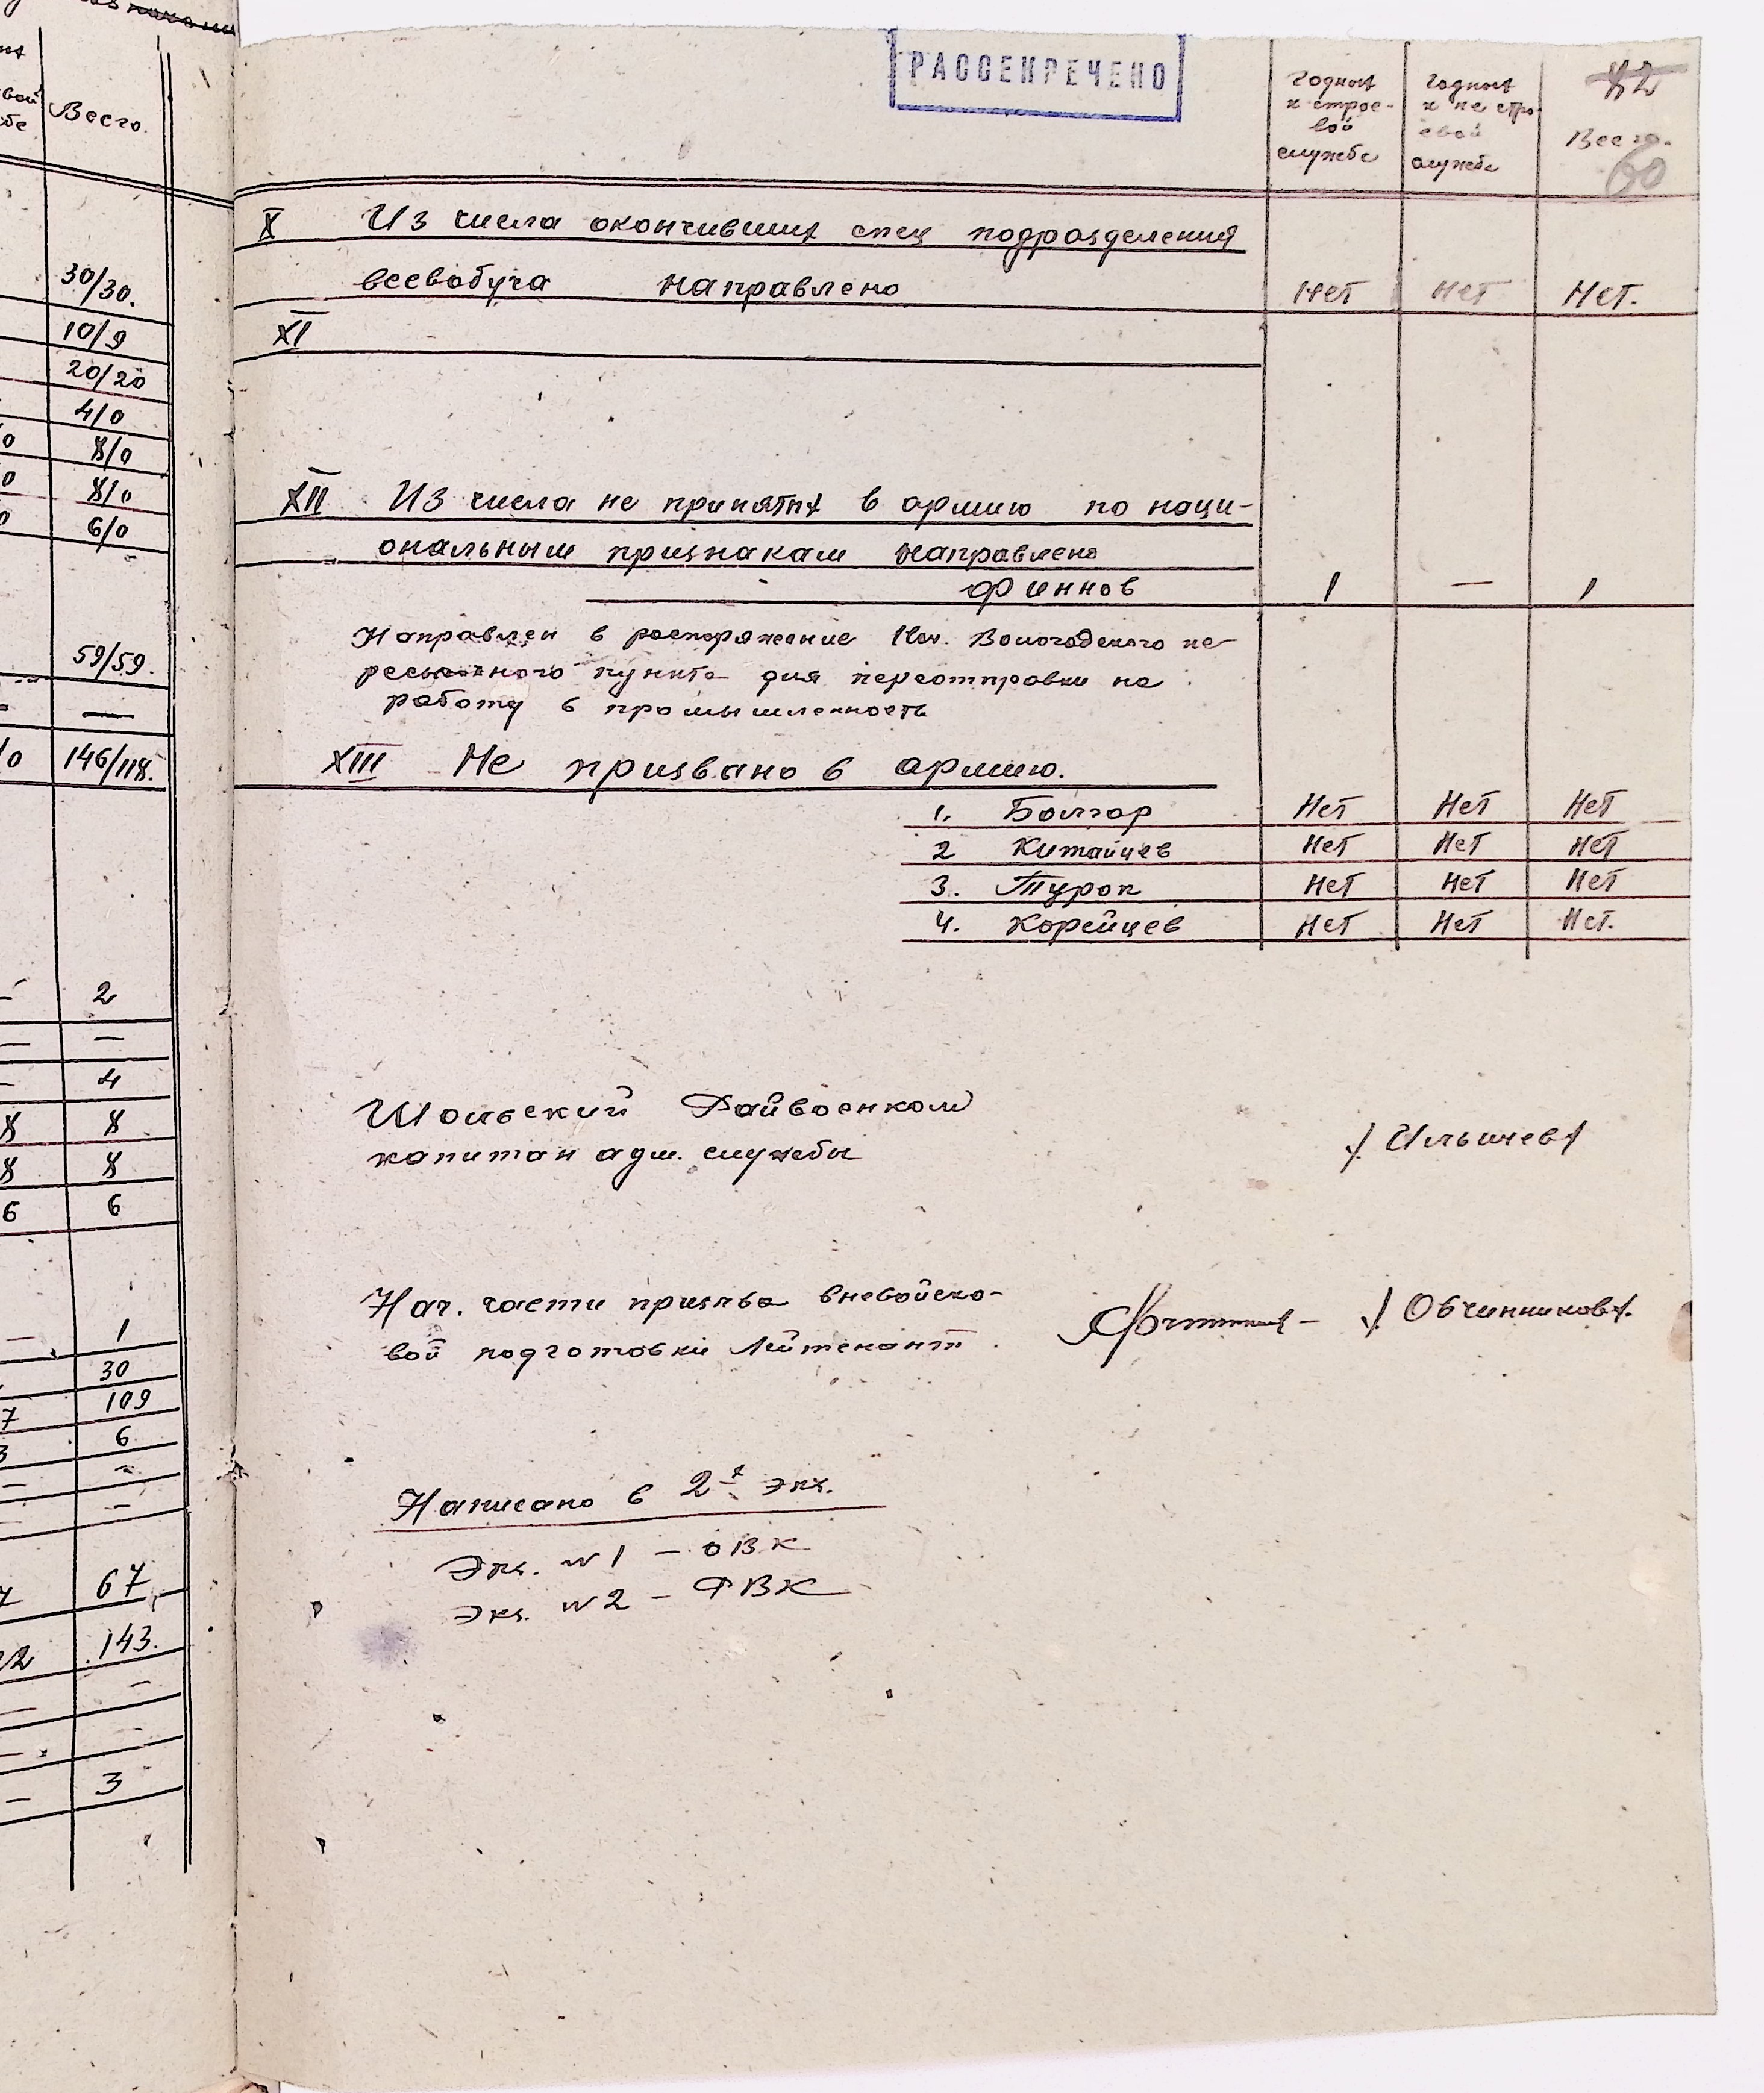 Всего.
30/30.
10/9
20/20
4/0
8/0
8/0
6/0
59/59.
—
146/118.
2
—
4
8 8
8 8
6 6
— 1
30
7 109
3 6
67
143.
3
РАССЕКРЕЧЕНО
82
60
Годных к строевой службе
Годных к не строевой службе
Всего.
X Из числа окончивших спец подразделения
всевобуча направлено Нет Нет Нет.
XI
XII Из числа не принятых в армию по наци-
ональным признакам направлено
Финнов 1 — 1
Направлен в распоряжение Нач. Вологодского пе-
ресыльного пункта для переотправки на
работу в промышленность
XIII Не призвано в армию.
1. Болгар Нет Нет Нет
2 Китайцев Нет Нет Нет
3. Турок Нет Нет Нет
4. Корейцев Нет Нет Нет.
Шольский Райвоенком
капитан адм. службы /Ильичев/
Нач. части призыва вневойско-
вой подготовки Лейтенант /Овчинников/.
Написано в 2х экз.
Экз. N1 – ОВК
Экз. N2 – РВК